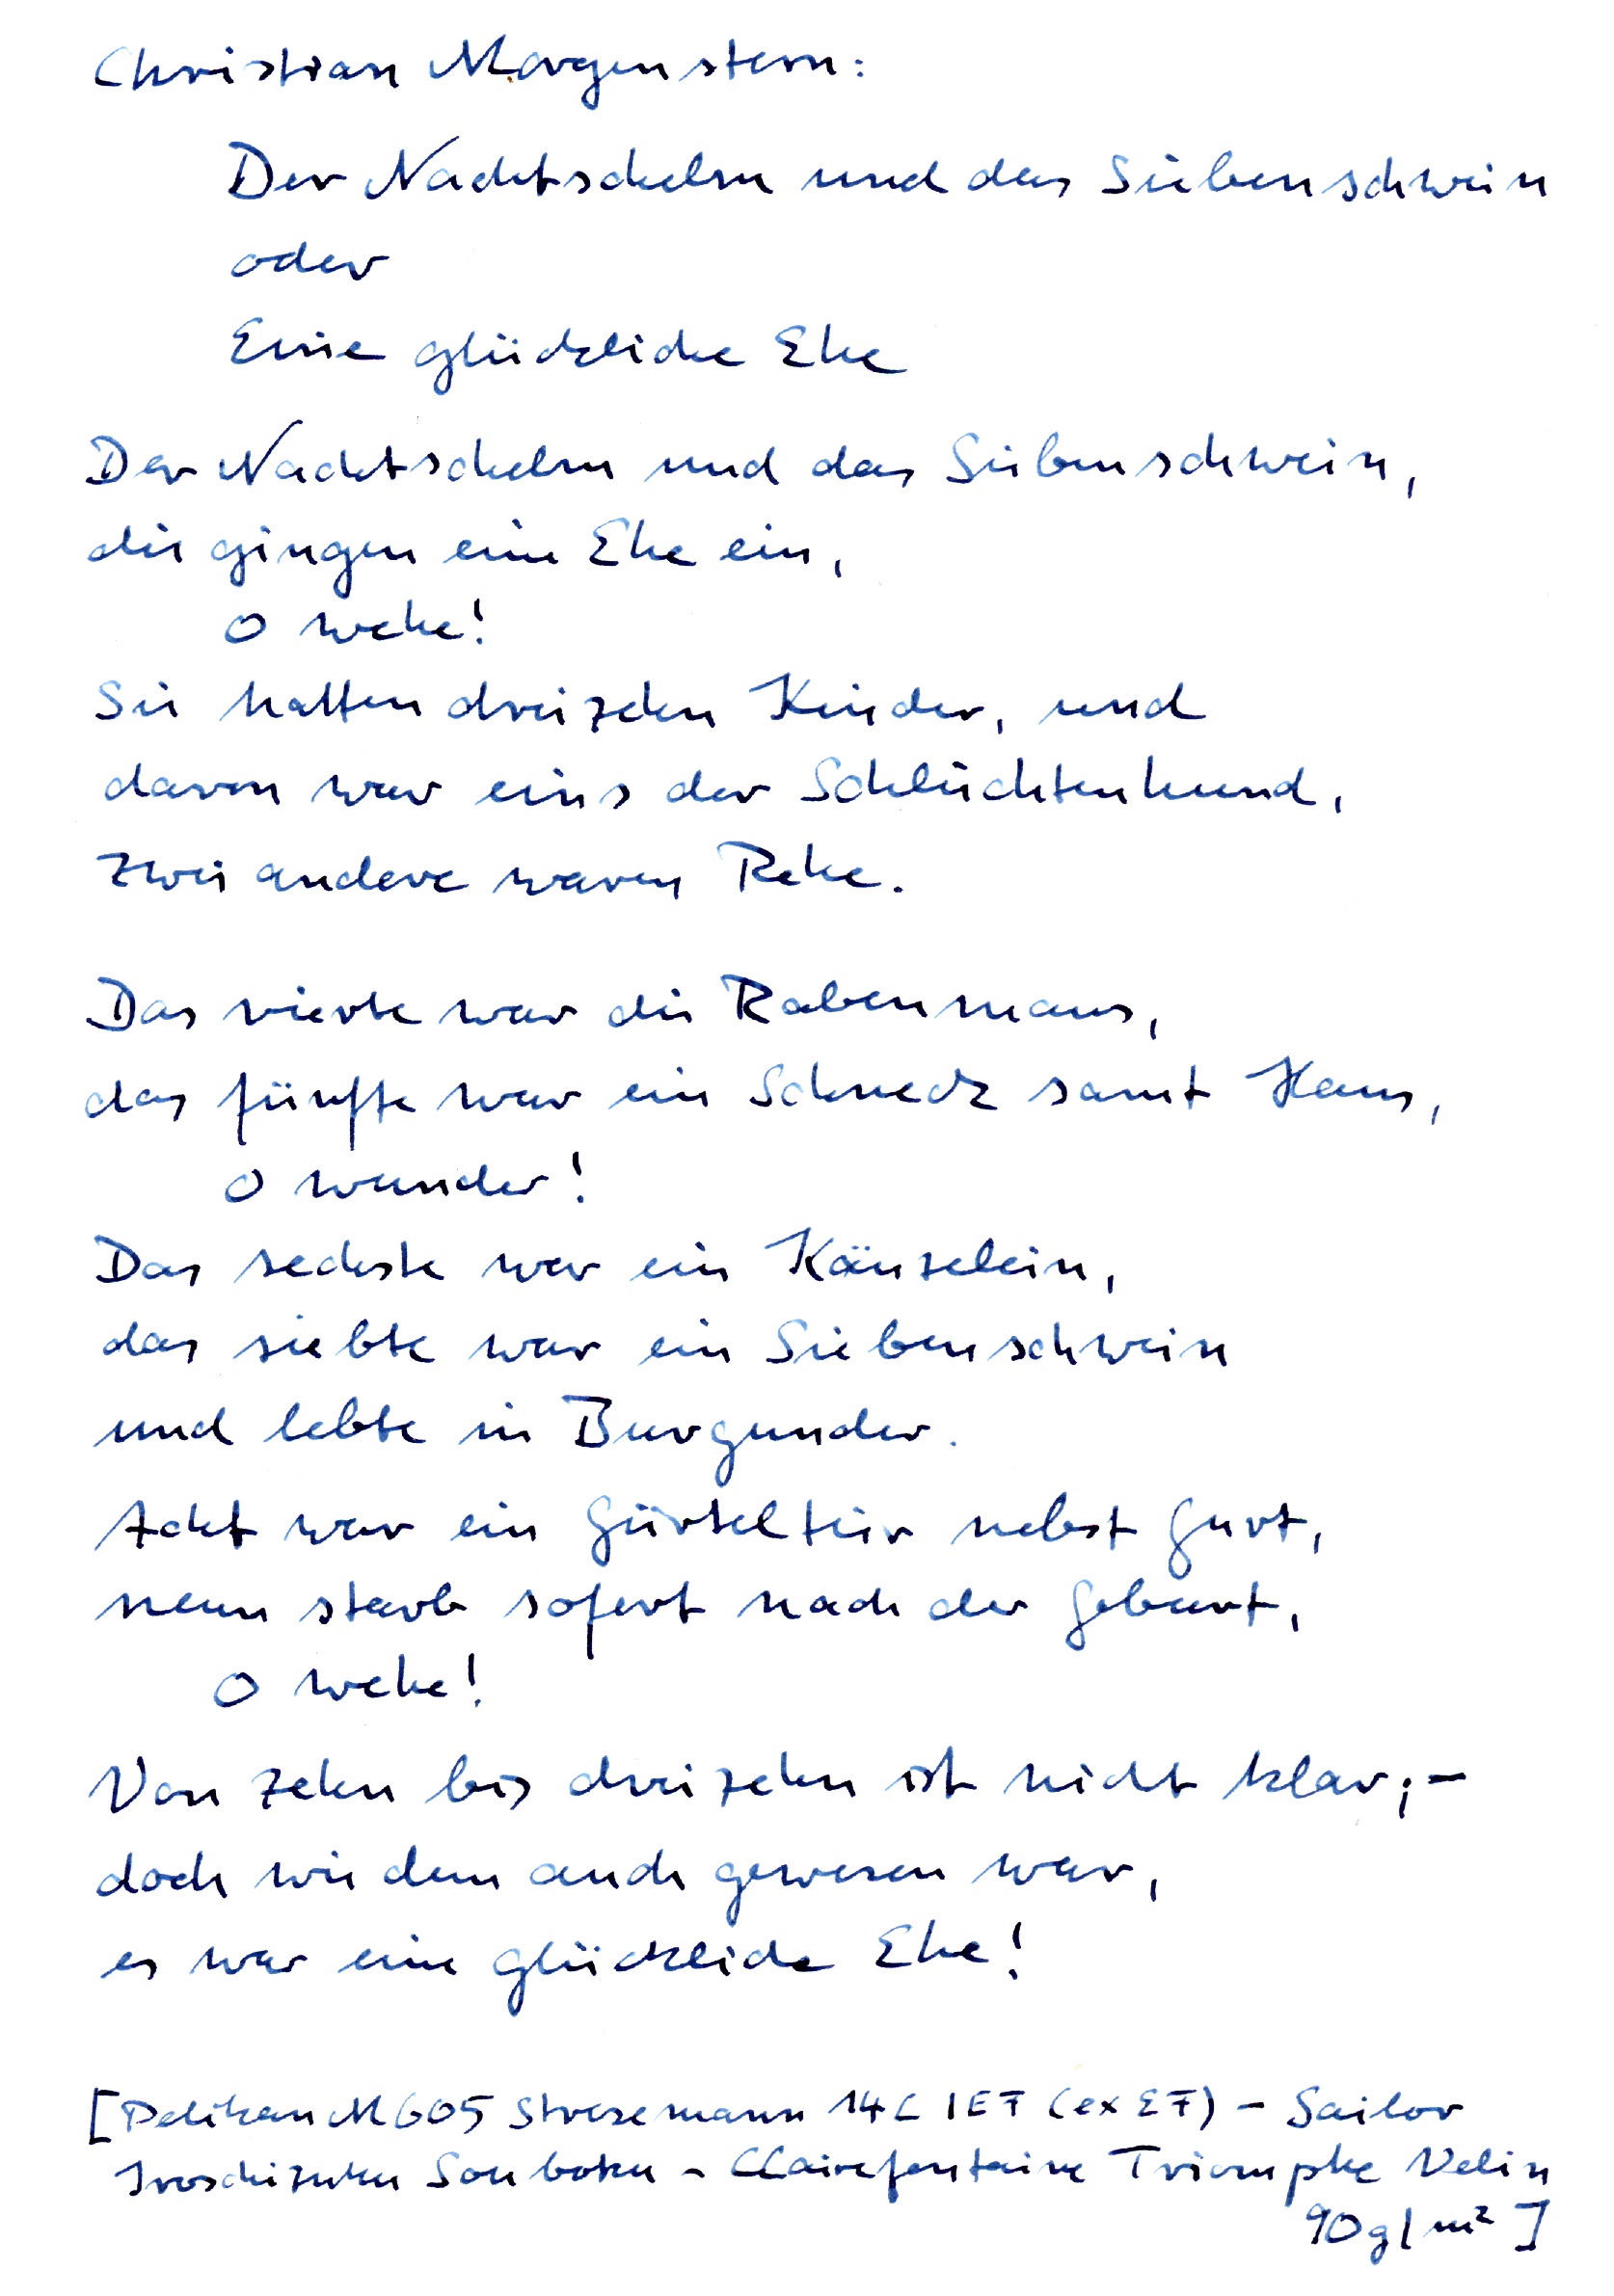 Christian Morgenstern:
Der Nachtschelm und das Siebenschwein
oder
Eine glückliche Ehe
Der Nachtschelm und das Siebenschwein,
die gingen eine Ehe ein,
O wehe!
Sie hatten dreizehn Kinder, und
davon war eins der Schluchtenhund,
zwei andere waren Rehe.
Das vierte war die Rabenmaus,
das fünfte war ein Schneck samt Haus,
O wunder!
Das sechste war ein Käuzelein,
das siebte war ein Siebenschwein
und lebte in Burgunder.
Acht war ein Gürteltier nebst Gurt,
neun starb sofort nach der Geburt,
O wehe!
Von zehn bis dreizehn ist nicht klar; –
doch wie dem auch gewesen war,
es war eine glückliche Ehe!
[Pelikan M605 Stresemann 14C IEF (ex EF) – Sailor
Iroschizuku Souboku – Clairefontaine Triomphe Velin
90g/m²]